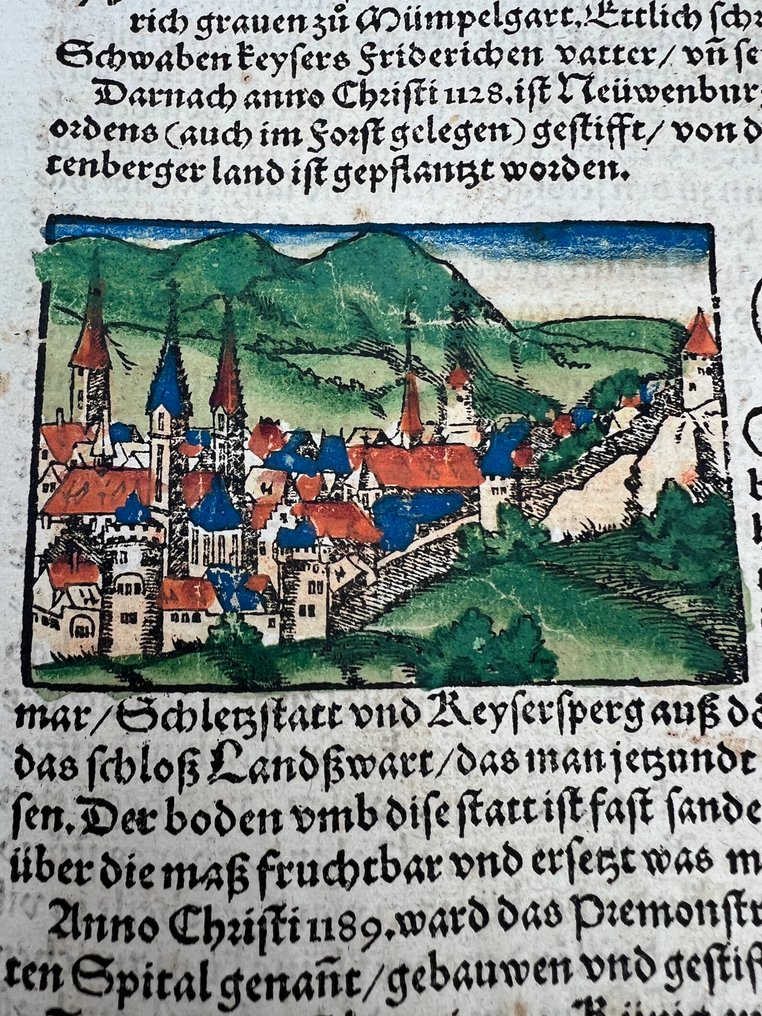 rich grauen zů Mümpelgart. Ettlich schr
Schwaben keysers Friderichen vatter/ vñ se
Darnach anno Christi 1128. ist Neüwenburg
ordens (auch im Forst gelegen) gestifft/ von d
tenberger land ist gepflantzt worden.
mar/ Schletzstatt vnd Keysersperg auß dö
das schloß Landßwart/ das man jetzundt
sen. Der boden vmb dise statt ist fast sande
über die maß fruchtbar vnd ersetzt was m
Anno Christi 1189. ward das Premonstr
ten Spital genañt/ gebauwen vnd gestif